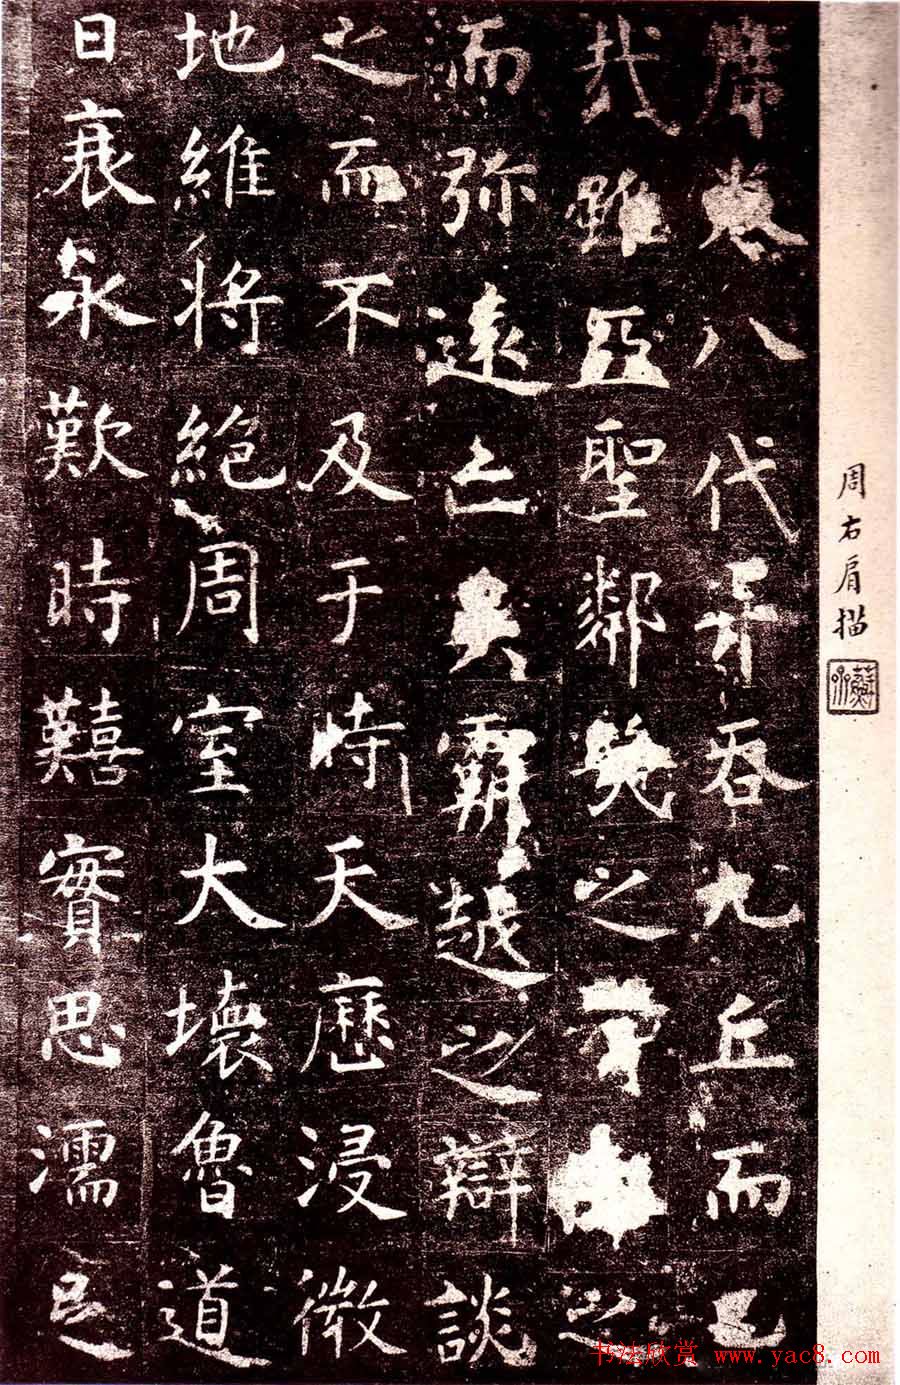 周右肩描
席卷八代并吞九丘而已
哉雖亞聖鄰幾之智仰之
而弥遠亡吳霸越之辯談
之而不及于時天曆浸微
地維將絕周室大壞魯道
日衰永歎時囏實思濡足
书法欣赏 www.yac8.com